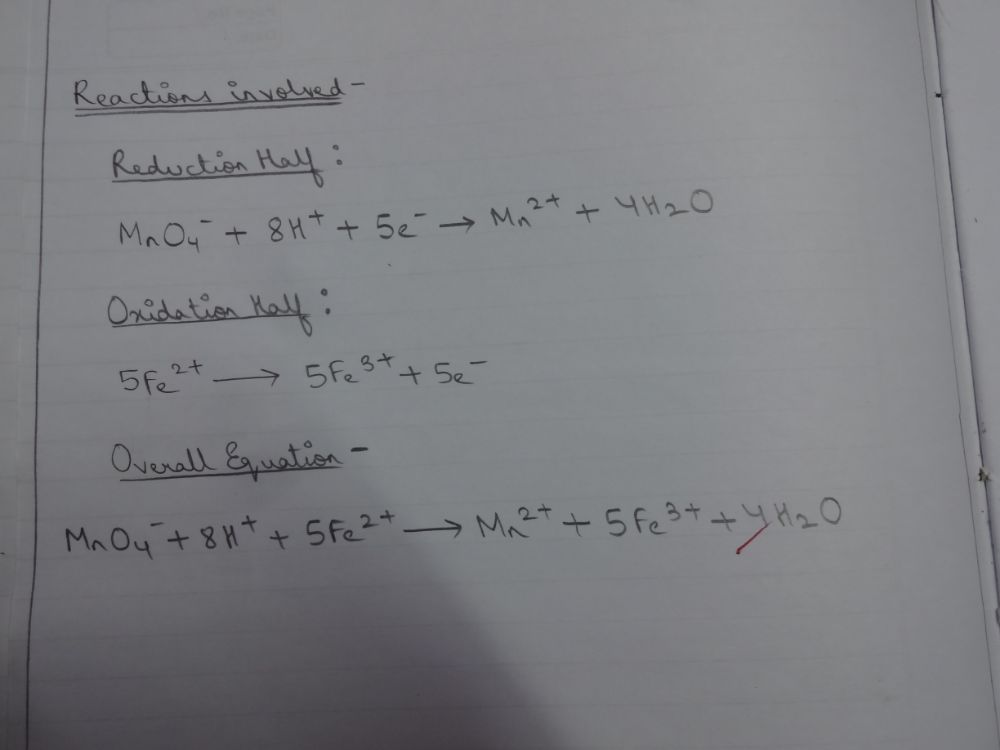 Reactions involved -
Reduction Half :
MnO₄⁻ + 8H⁺ + 5e⁻ → Mn²⁺ + 4H₂O
Oxidation Half :
5Fe²⁺ → 5Fe³⁺ + 5e⁻
Overall Equation -
MnO₄⁻ + 8H⁺ + 5Fe²⁺ → Mn²⁺ + 5Fe³⁺ + 4H₂O